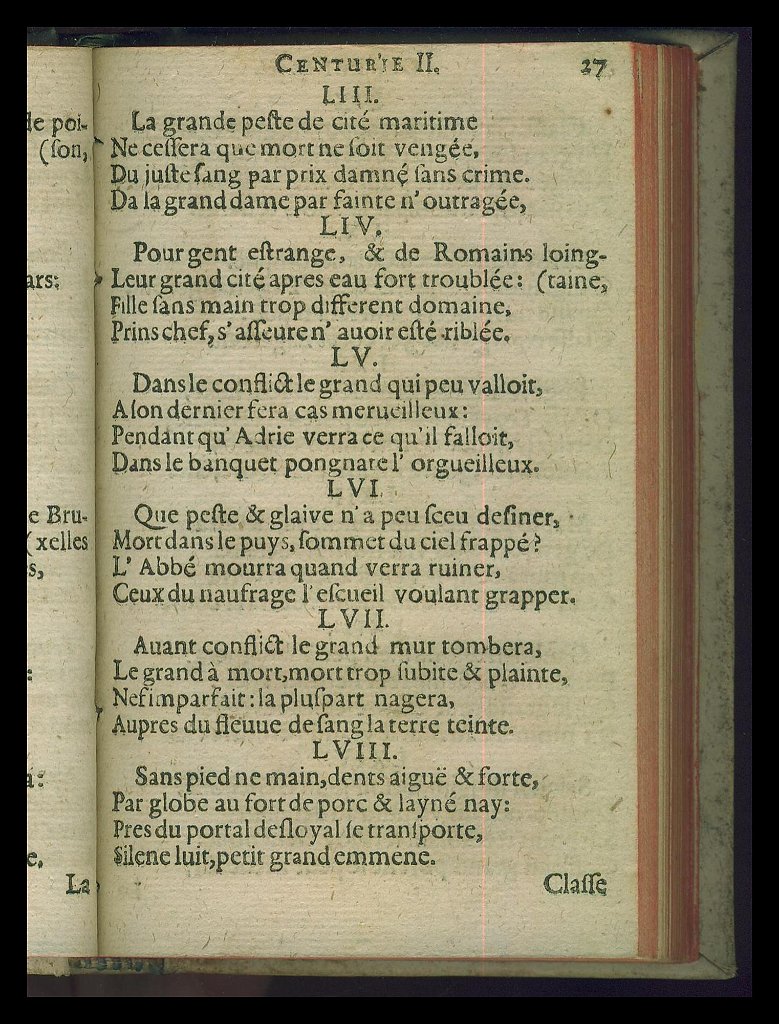 de poi-
(son,
ars:
e Bru-
(xelles
s,
:
a:
e.
La
CENTURIE II. 27
LIII.
La grande peſte de cité maritime
Ne ceſſera que mort ne ſoit vengée,
Du juſte ſang par prix damné ſans crime.
Da la grand dame par fainte n'outragée,
LIV.
Pour gent eſtrange, & de Romains loing-
Leur grand cité apres eau fort troublée: (taine,
Fille ſans main trop different domaine,
Prins chef, s'aſſeure n'auoir eſté riblée.
LV.
Dans le conflict le grand qui peu valloit,
A ſon dernier fera cas merueilleux:
Pendant qu'Adrie verra ce qu'il falloit,
Dans le banquet pongnate l'orgueilleux.
LVI.
Que peſte & glaive n'a peu ſceu definer,
Mort dans le puys, ſommet du ciel frappé?
L'Abbé mourra quand verra ruiner,
Ceux du naufrage l'eſcueil voulant grapper.
LVII.
Auant conflict le grand mur tombera,
Le grand à mort, mort trop ſubite & plainte,
Nef imparfait: la pluſpart nagera,
Aupres du fleuue de ſang la terre teinte.
LVIII.
Sans pied ne main, dents aiguë & forte,
Par globe au fort de porc & layné nay:
Pres du portal deſloyal ſe tranſporte,
Silene luit, petit grand emmene.
Claſſe